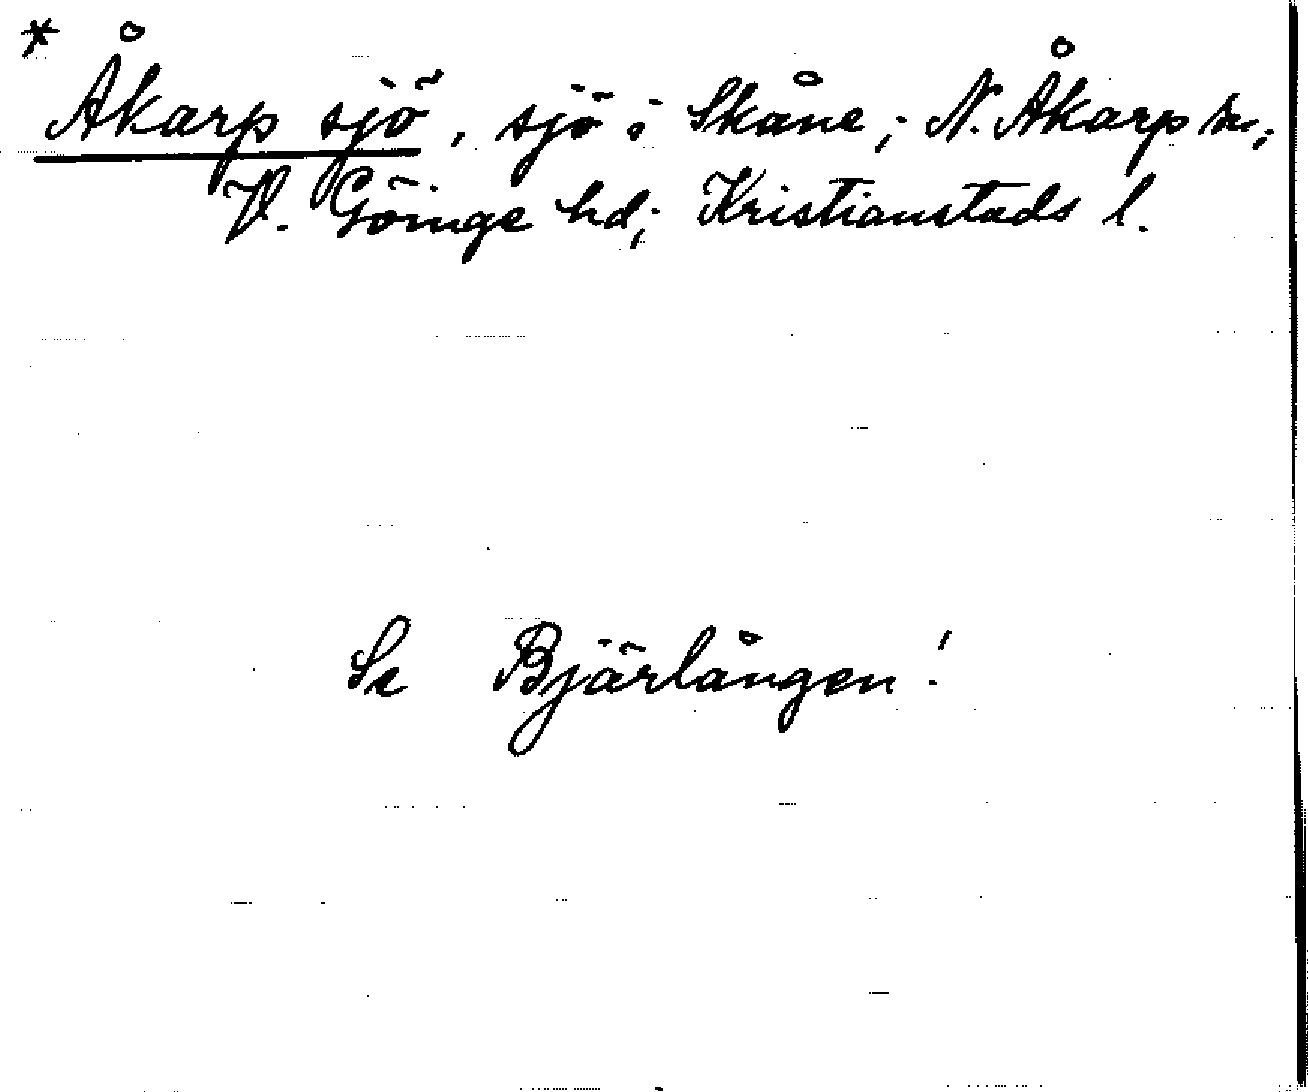 * Åkarp sjö, sjö i Skåne; N. Åkarp sn;
V. Göinge hd; Kristianstads l.
Se Bjärlången!